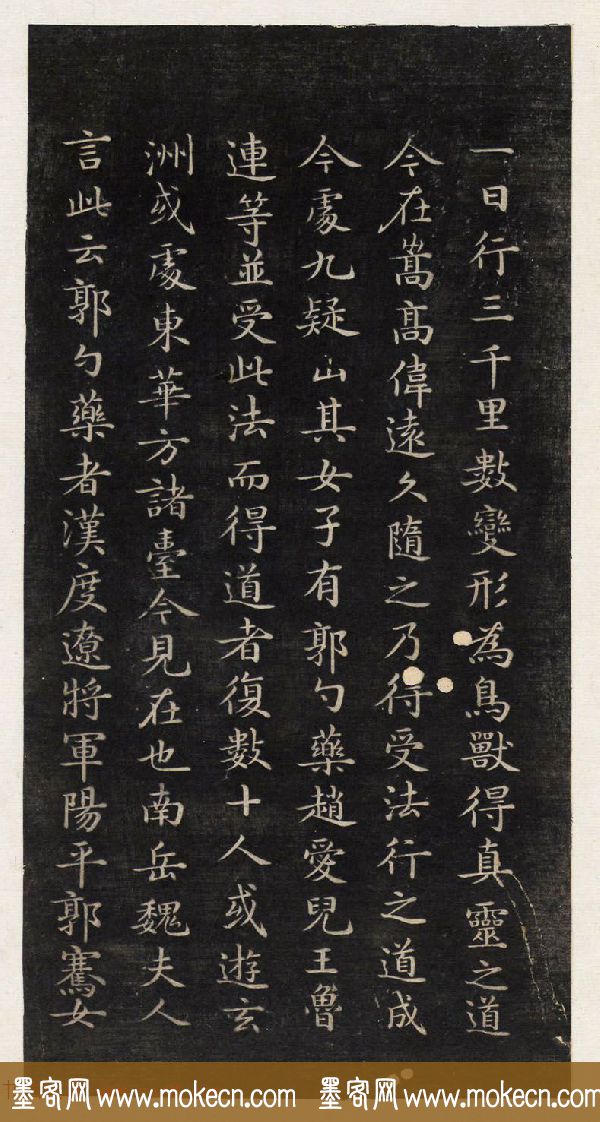 一日行三千里數變形為鳥獸得真靈之道
今在嵩高偉遠久隨之乃得受法行之道成
今處九疑山其女子有郭勺藥趙愛兒王魯
連等並受此法而得道者復數十人或遊玄
洲或處東華方諸臺今見在也南岳魏夫人
言此云郭勺藥者漢度遼將軍陽平郭騫女
墨客网 www.mokecn.com 墨客网 www.mokecn.com